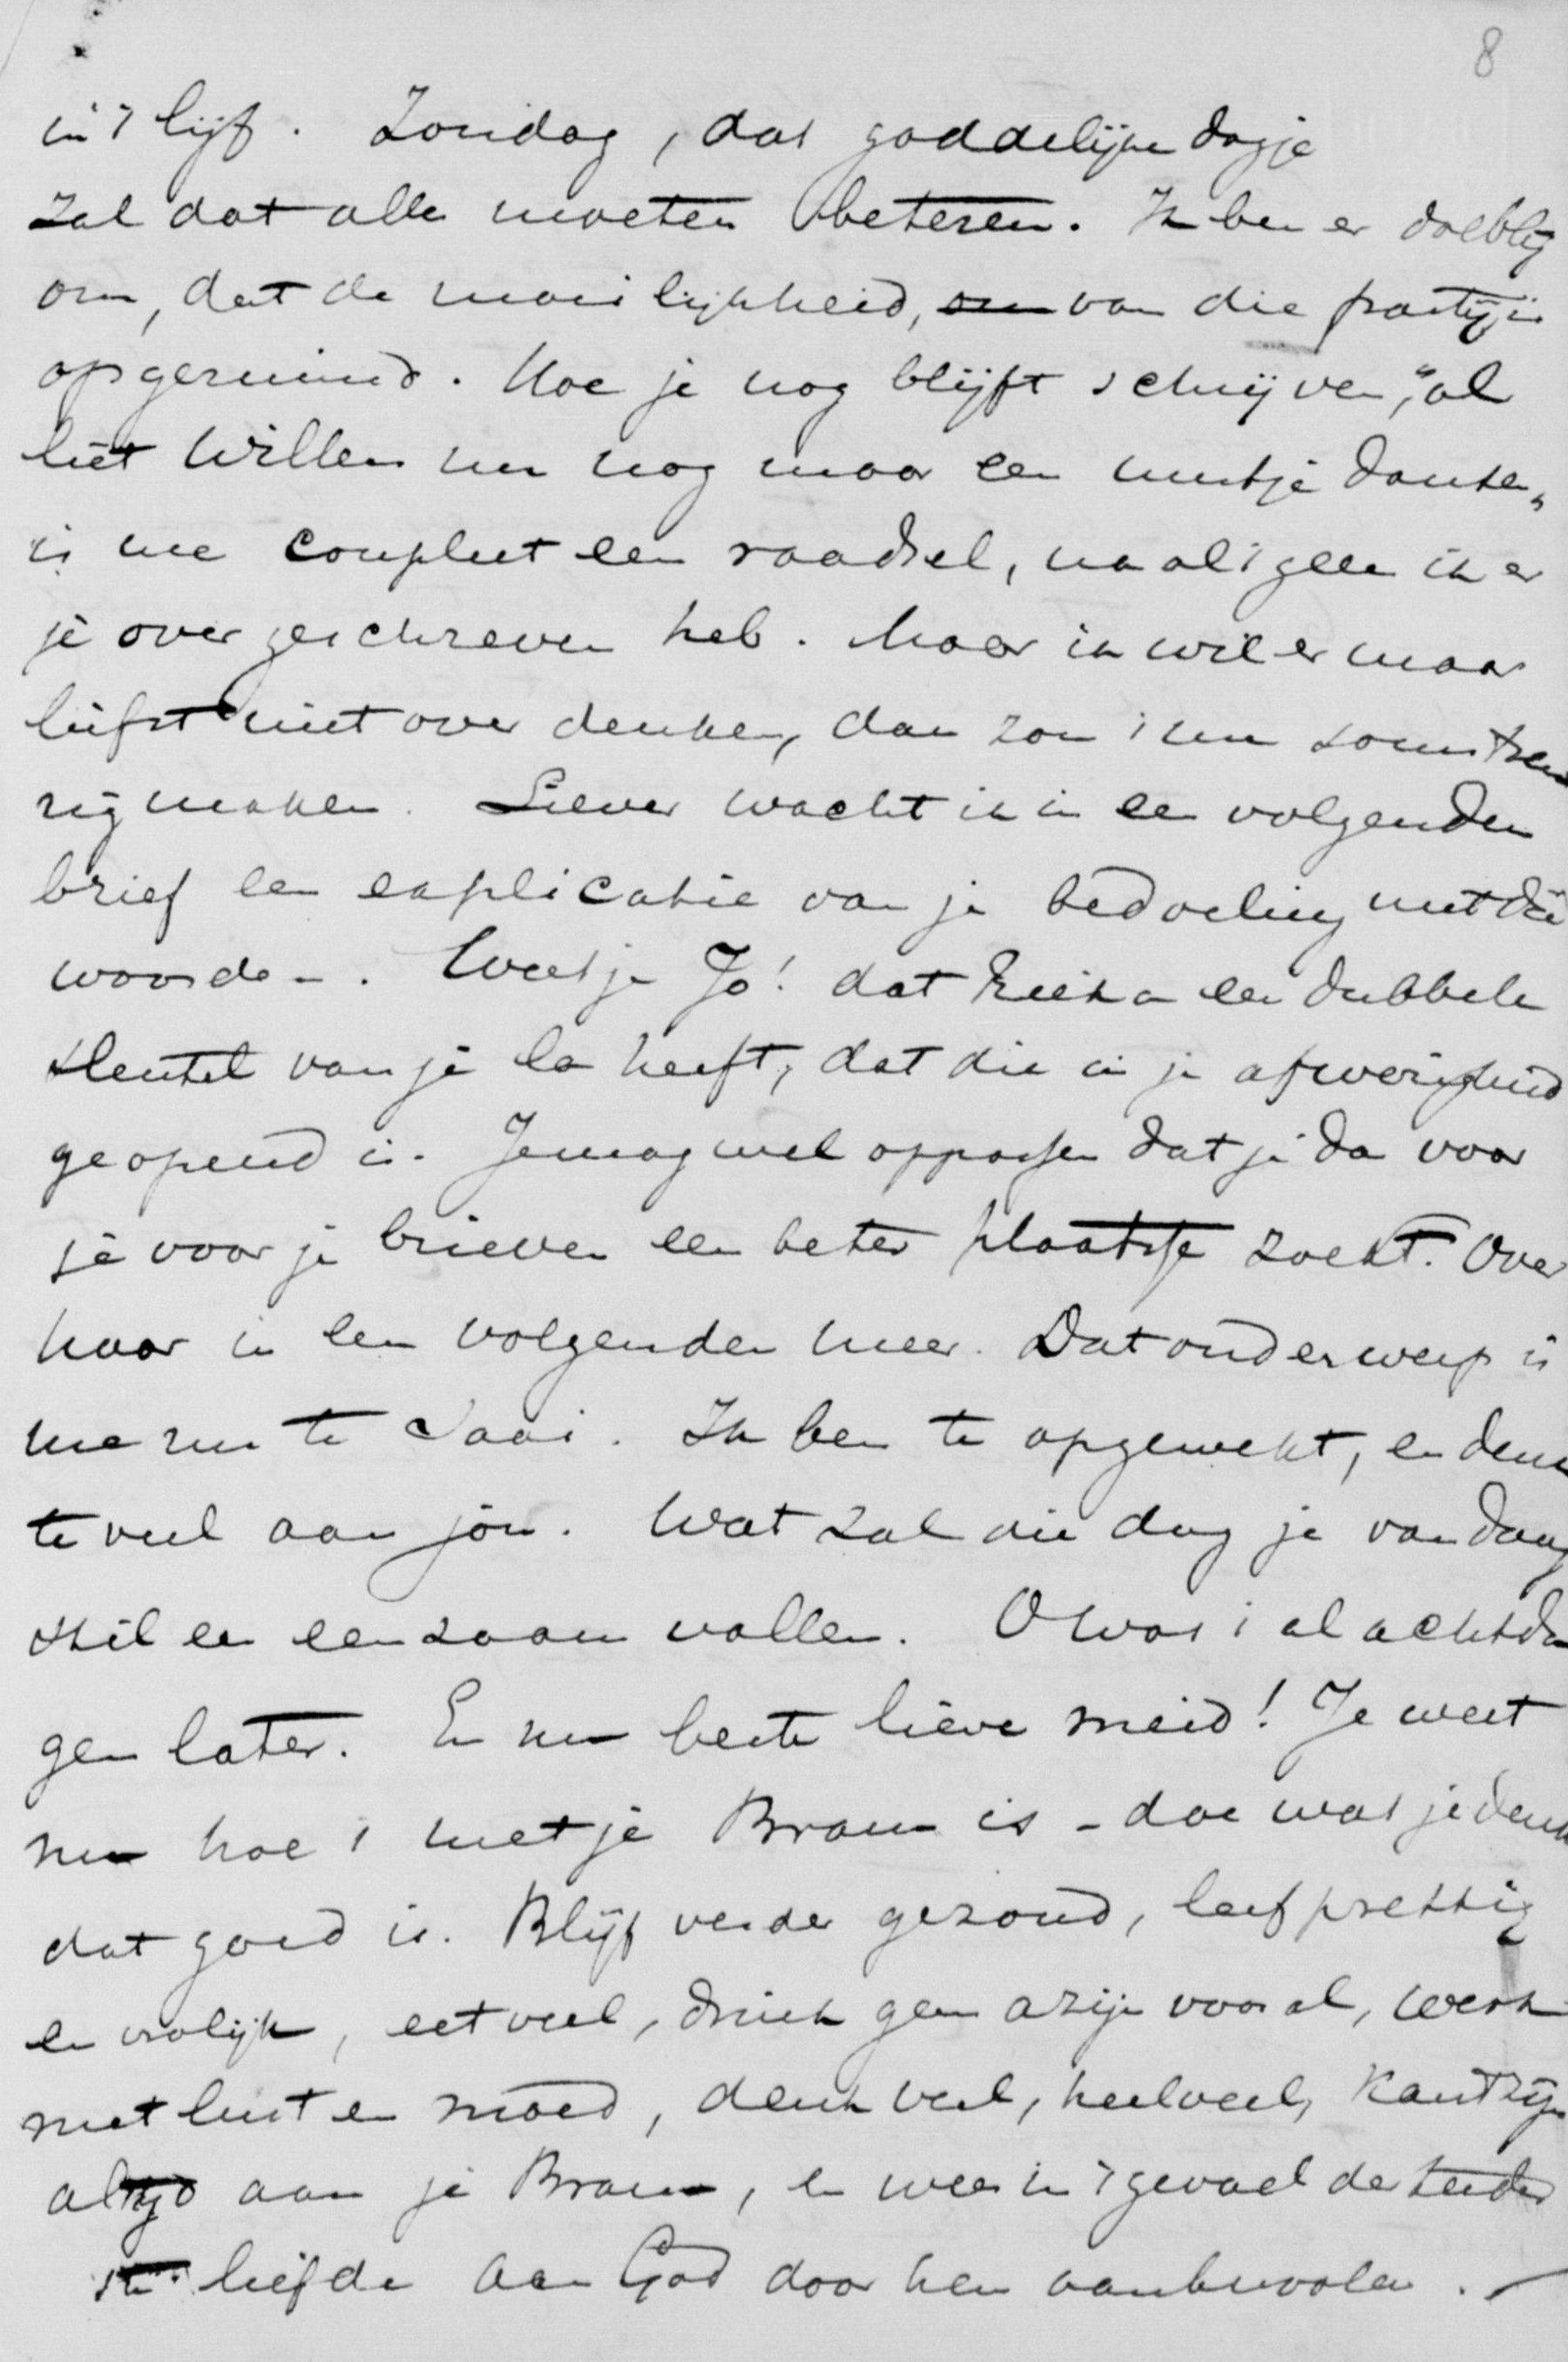 8
in 't lijf. Zondag, dat goddelijke dagje
zal dat alles moeten verbeteren. Ik ben er dolblij
om, dat de moeilijkheid, van die partij is
opgeruimd. Hoe je nog blijft schrijven, "al
liet Willem me nog maar een nachtje danken,
is me compleet een raadsel, na al 'tgeen ik er
je over geschreven heb. Maar ik wil er maar
liefst niet over denken, dan zou 't me soms treu
rig maken. Liever wacht ik in een volgenden
brief een explicatie van je bedoeling met die
woorden. Weet je Jo! dat Rieka een dubbele
sleutel van je la heeft, dat die in je afwezigheid
geopend is. Je mag wel oppassen dat je da voor
je voor je brieven een beter plaatsje zoekt. Over
haar in een volgenden meer. Dat onderwerp is
me nu te saai. Ik ben te opgewekt, en denk
te veel aan jou. Wat zal die dag je vandaag
stil en eenzaam vallen. O was 't al acht da
gen later. En nu beste lieve meid! Je weet
nu hoe 't met je Bram is - doe wat je denkt
dat goed is. Blijf verder gezond, leef prettig
en vrolijk, eet veel, drink geen azijn vooral, werk
met lust en moed, denk veel, heel veel,
altijd aan je Bram, en wees in 't gevoel der teeder
ste liefde aan God door hem aanbevolen.